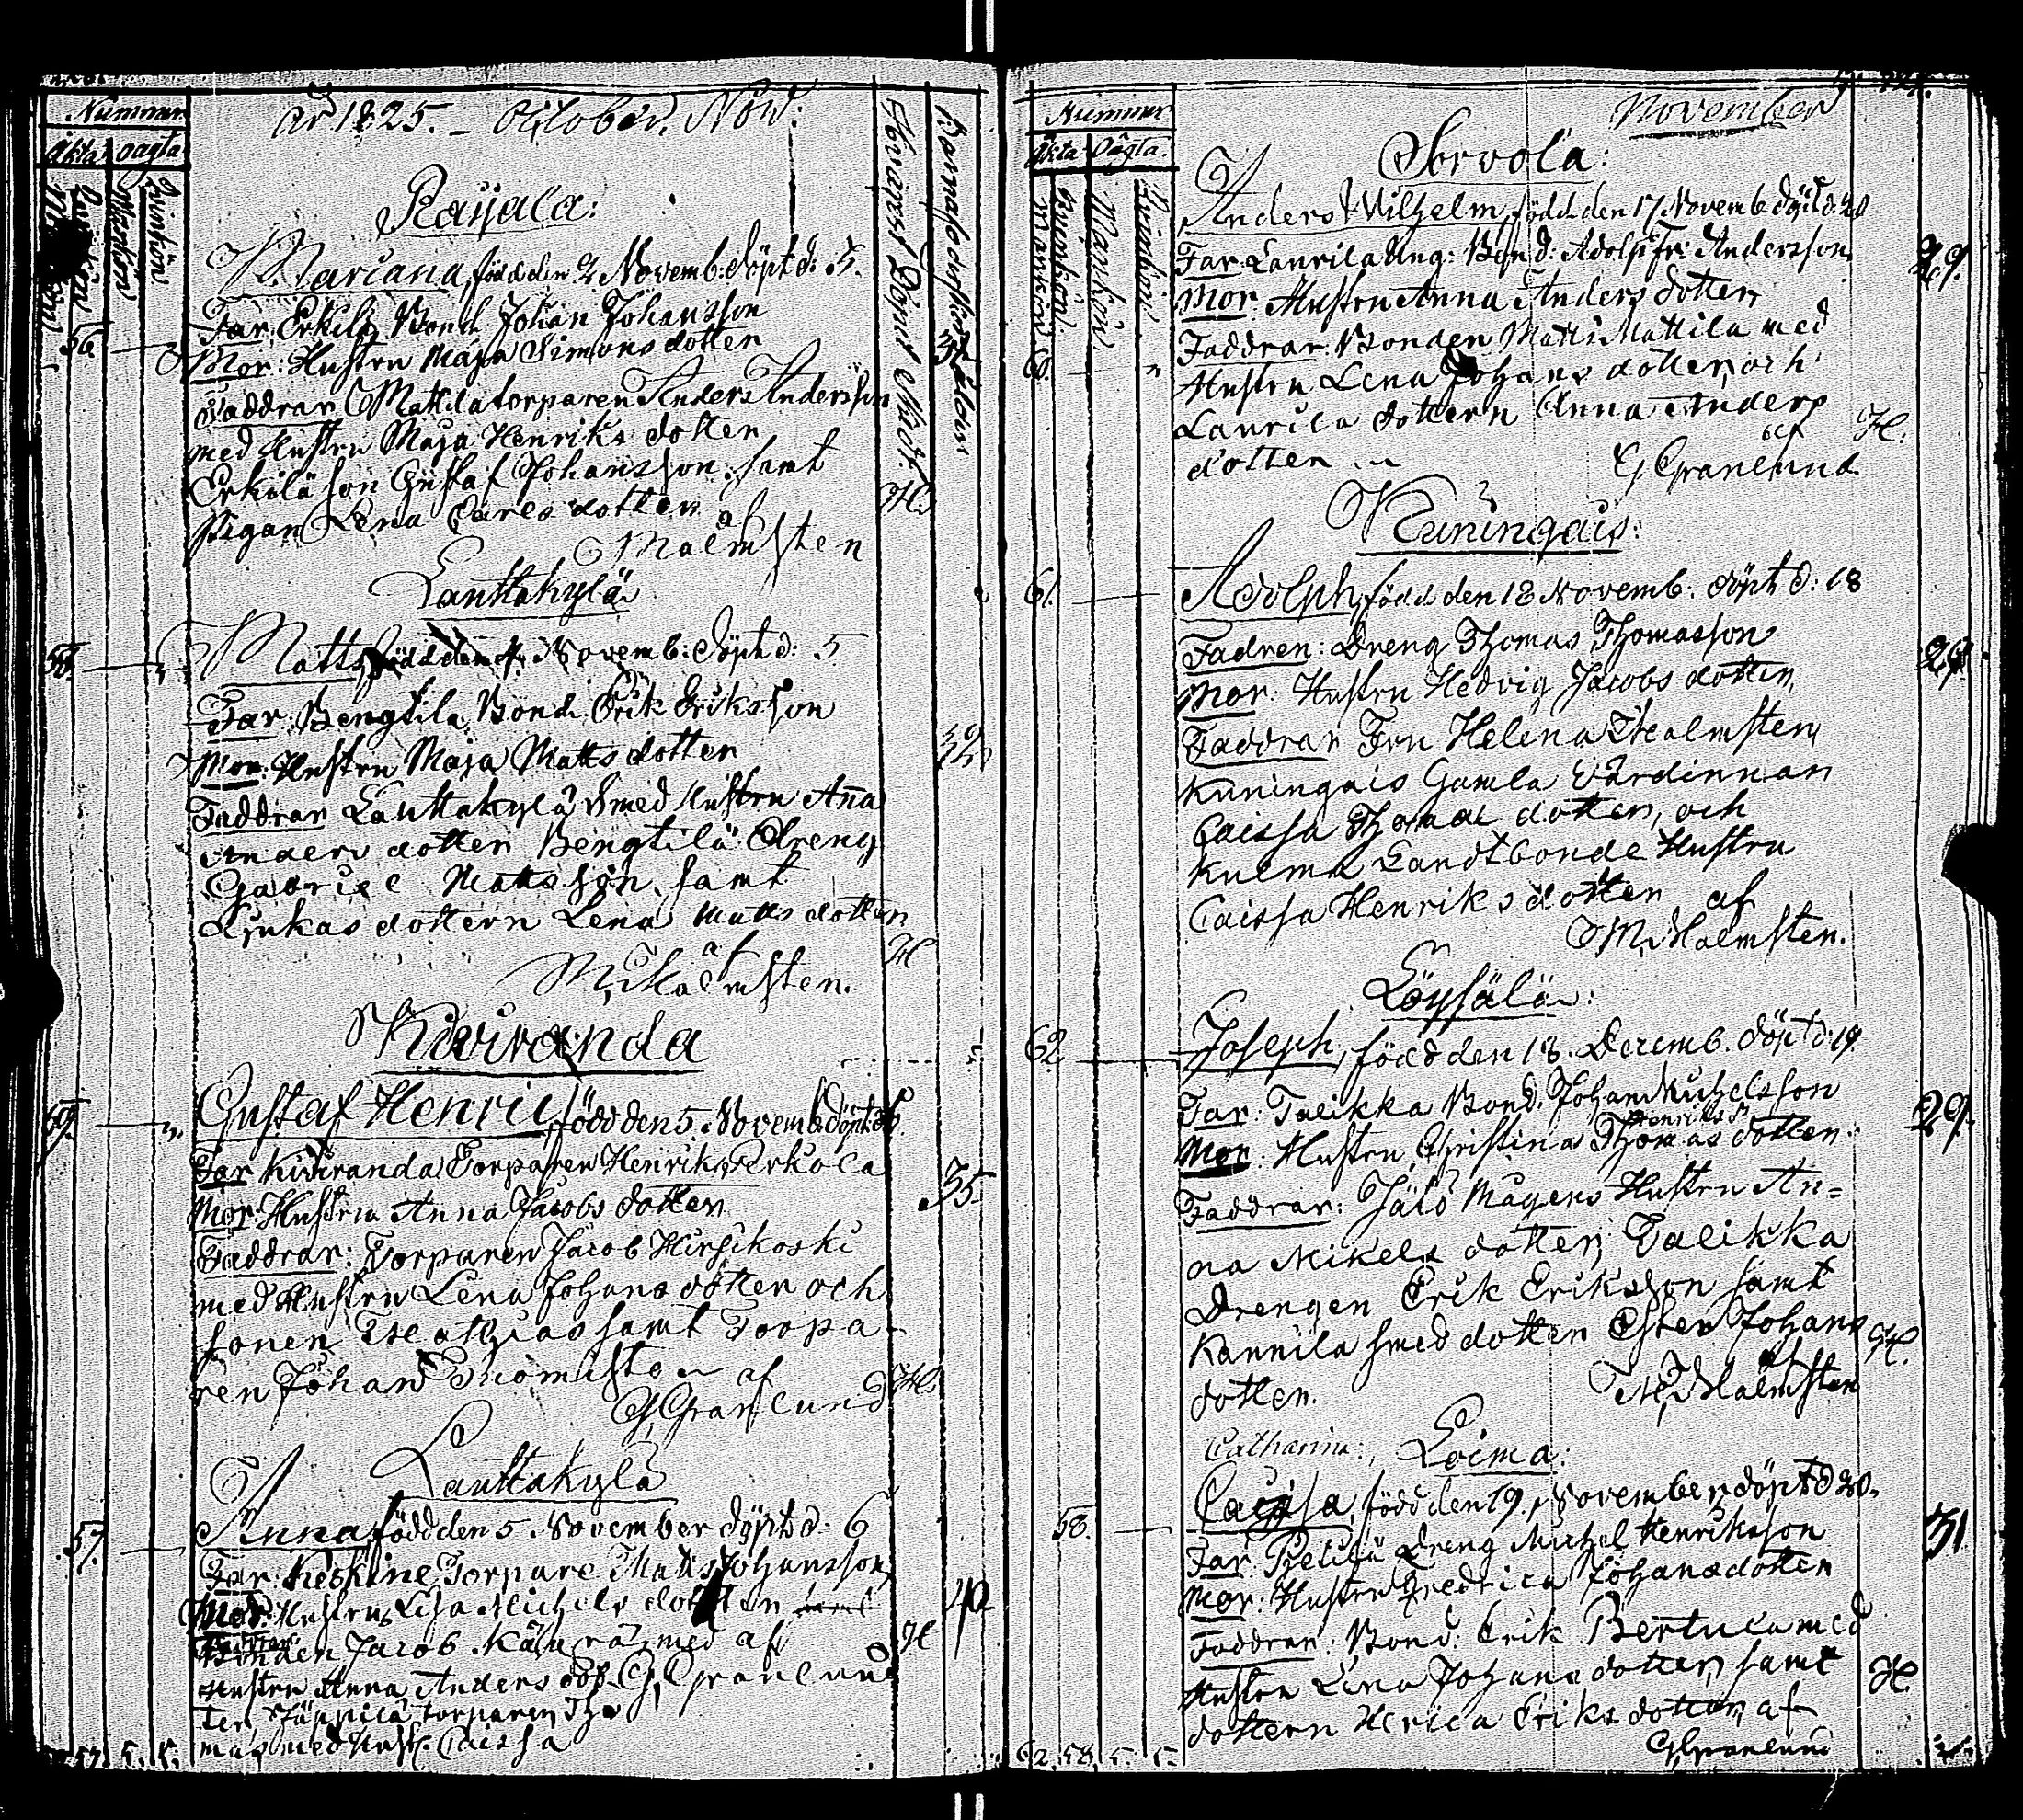 År 1825. – October. Nov:
Nummer
Äkta Oägta
Qvinkön
Mankön
Qvinkön
Hvarest Döpnt skedt.
Barnaföderskans ålder
Raijala:
Mariana, född den 2 Novemb: döpt d: 5.
Far: Erkilä Bond Johan Johansson
56.
Mor: Hustru Maja Simons dotter
Faddrar Mattila torparen Anders Andersson
med Hustru Maja Henriks dotter
Erkilä son Gustaf Johansson, samt
H.
Pigan Lena Carls dotter af
Malmsten
Lauttakylä
58.
Matts, född den 4. Novemb: döpt d: 5
Far: Bengtilä Bond: Erik Eriksson
32
Mor: Hustru Maja Matts dotter
Faddrar Lauttakylä Smed Hustru Anna
Anders dotter Bengtilä Dreng
Gabriel Matts son, samt
dottern Lena Matts dotter
af H
M, Malmsten.
Kiviranda
59.
Gustaf Henric, född den 5 Novemb: döpt d: 6.
Far Kiviranda Torparen Henrik Perkola
35.
Mor: Hustru Anna Jacobs dotter
Faddrar: Torparen Jacob Hirsikoski
med Hustru Lena Johans dotter och
sonen Mathias samt Torpa-
ren Johan Tuomisto af H.
G, Granlund
Lauttakylä
57.
Anna, född den 5 November döpt d: 6
Far: Keskine Torpare Matts Johansson
40
Mor: Hustru Lisa Michels dotter
Faddrar
Bonden Jacob med af H
Hustru Anna Anders dot- G, Granlund
ter, Jaappila torparen Tho
mas med Hust: Caissa
57. 5. 5.
November
Nummer
Äkta Oägta.
Mankön
Qvinkön
Mankön
Qvinkön
Sorvola:
Anders Wilhelm, född den 17 Novemb. döpt d: 20
Far: Laurila Ung: Bond: Adolf Fr: Andersson
29.
Mor: Hustru Anna Anders dotter
Faddrar: Bonden Matts Mattila med
60.
Hustru Lena Johans dotter, och
Laurila dottern Anna Anders
dotter af H.
G Granlund
Kuningais:
61.
Adolph, född den 18 Novemb: döpt d: 18
Fadren: Dreng Thomas Thomasson
29
Mor: Hustru Hedvig Jacobs dotter,
Faddrar Fru Helena Malmsten,
Kuningais Gamla Värdinnan
Caissa Thomas dotter, och
Landtbonde Hustru
Caissa Henriks dotter af
M, Malmsten.
Löysälä:
62
Joseph, född den 18. Decemb. döpt d: 19.
Far: Talikka Bond. Johan Michelsson
29.
Henriks d
Mor: Hustru Christina Thomas dotter.
Faddrar: Jälö Mågens Hustru An=
na Mikels dotter, Talikka
Drengen Erik Eriksson samt
Kannila smed dotter Ester Johans
H.
dotter. af
M, Malmsten
Catharina:, Loima:
Caisa, född den 19. November, döpt d 20.
58.
Far: Dreng Michel Henriksson
31
Mor: Hustru Fredrica Johans dotter
Faddrar: Bond: Erik Bertula med
Hustru Lena Johans dotter, samt
H.
dottern Ulrica Eriks dotter, af
G, Granlund
62. 58. 5. 5.